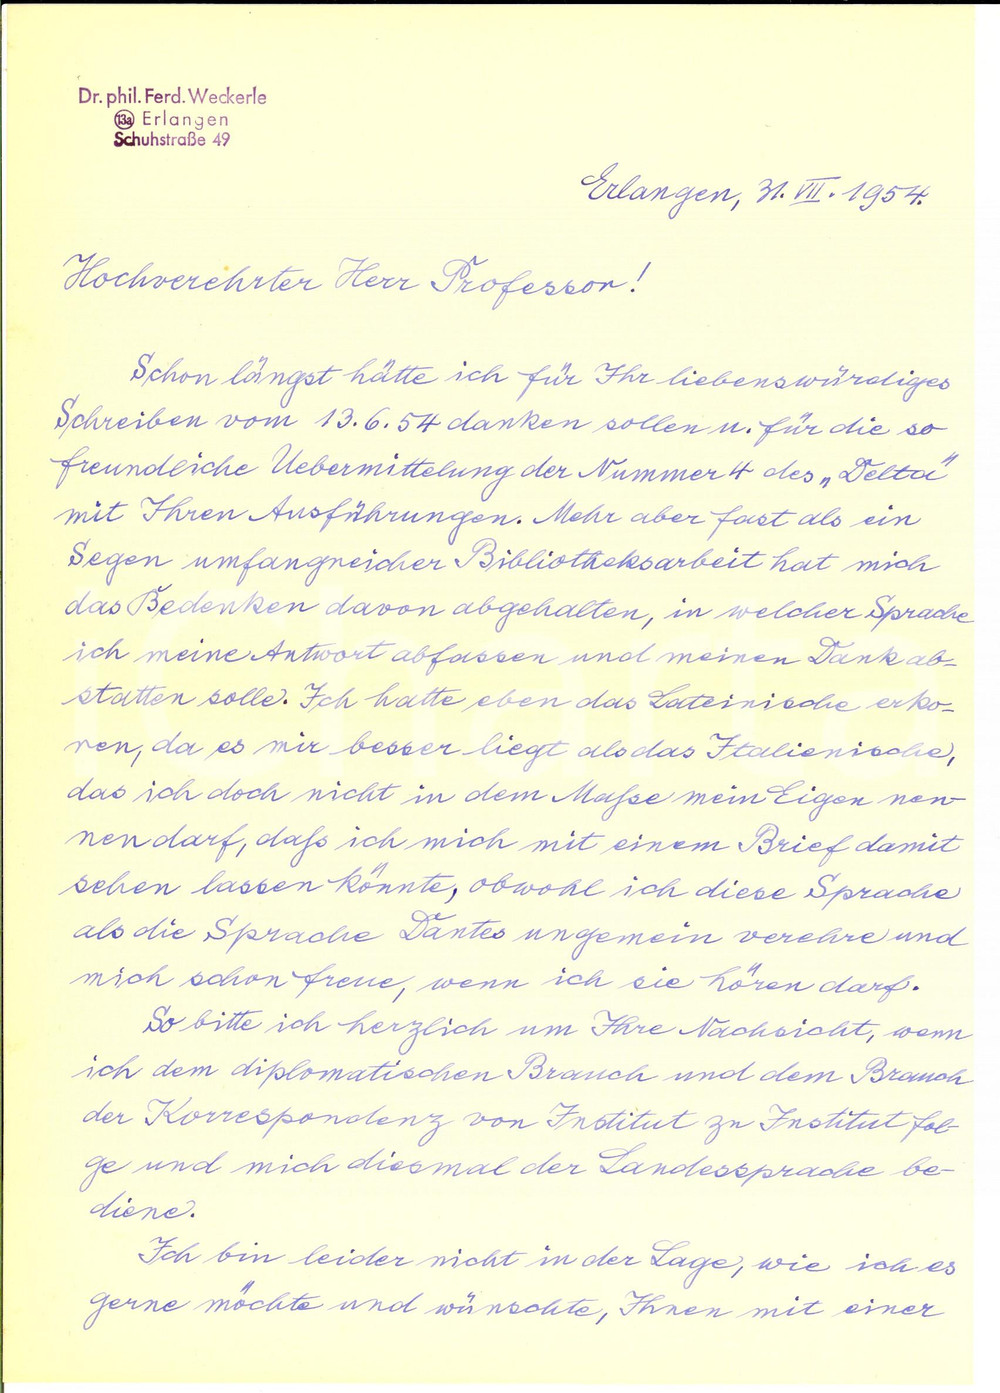 Dr. phil. Ferd. Weckerle
13a Erlangen
Schuhstraße 49
Erlangen, 31. VII. 1954.
Hochverehrter Herr Professor!
Schon längst hätte ich für Ihr liebenswürdiges
Schreiben vom 13.6.54 danken sollen u. für die so
freundliche Uebermittelung der Nummer 4 des „Delta"
mit Ihren Ausführungen. Mehr aber fast als ein
Segen umfangreicher Bibliotheksarbeit hat mich
das Bedenken davon abgehalten, in welcher Sprache
ich meine Antwort abfassen und meinen Dank ab-
statten solle. Ich hatte eben das Lateinische erko-
ren, da es mir besser liegt als das Italienische,
das ich doch nicht in dem Maße mein Eigen nen-
nen darf, daß ich mich mit einem Brief damit
sehen lassen könnte, obwohl ich diese Sprache
als die Sprache Dantes ungemein verehre und
mich schon freue, wenn ich sie hören darf.
So bitte ich herzlich um Ihre Nachsicht, wenn
ich dem diplomatischen Brauch und dem Brauch
der Korrespondenz von Institut zu Institut fol-
ge und mich diesmal der Landessprache be-
diene.
Ich bin leider nicht in der Lage, wie ich es
gerne möchte und wünschte, Ihnen mit einer